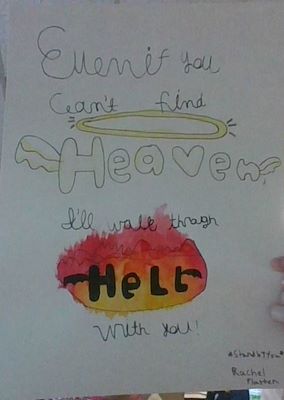 Even if you
Can't find
Heaven
I'll walk through
HELL
With you!
*Stand by You*
Rachel
Platten